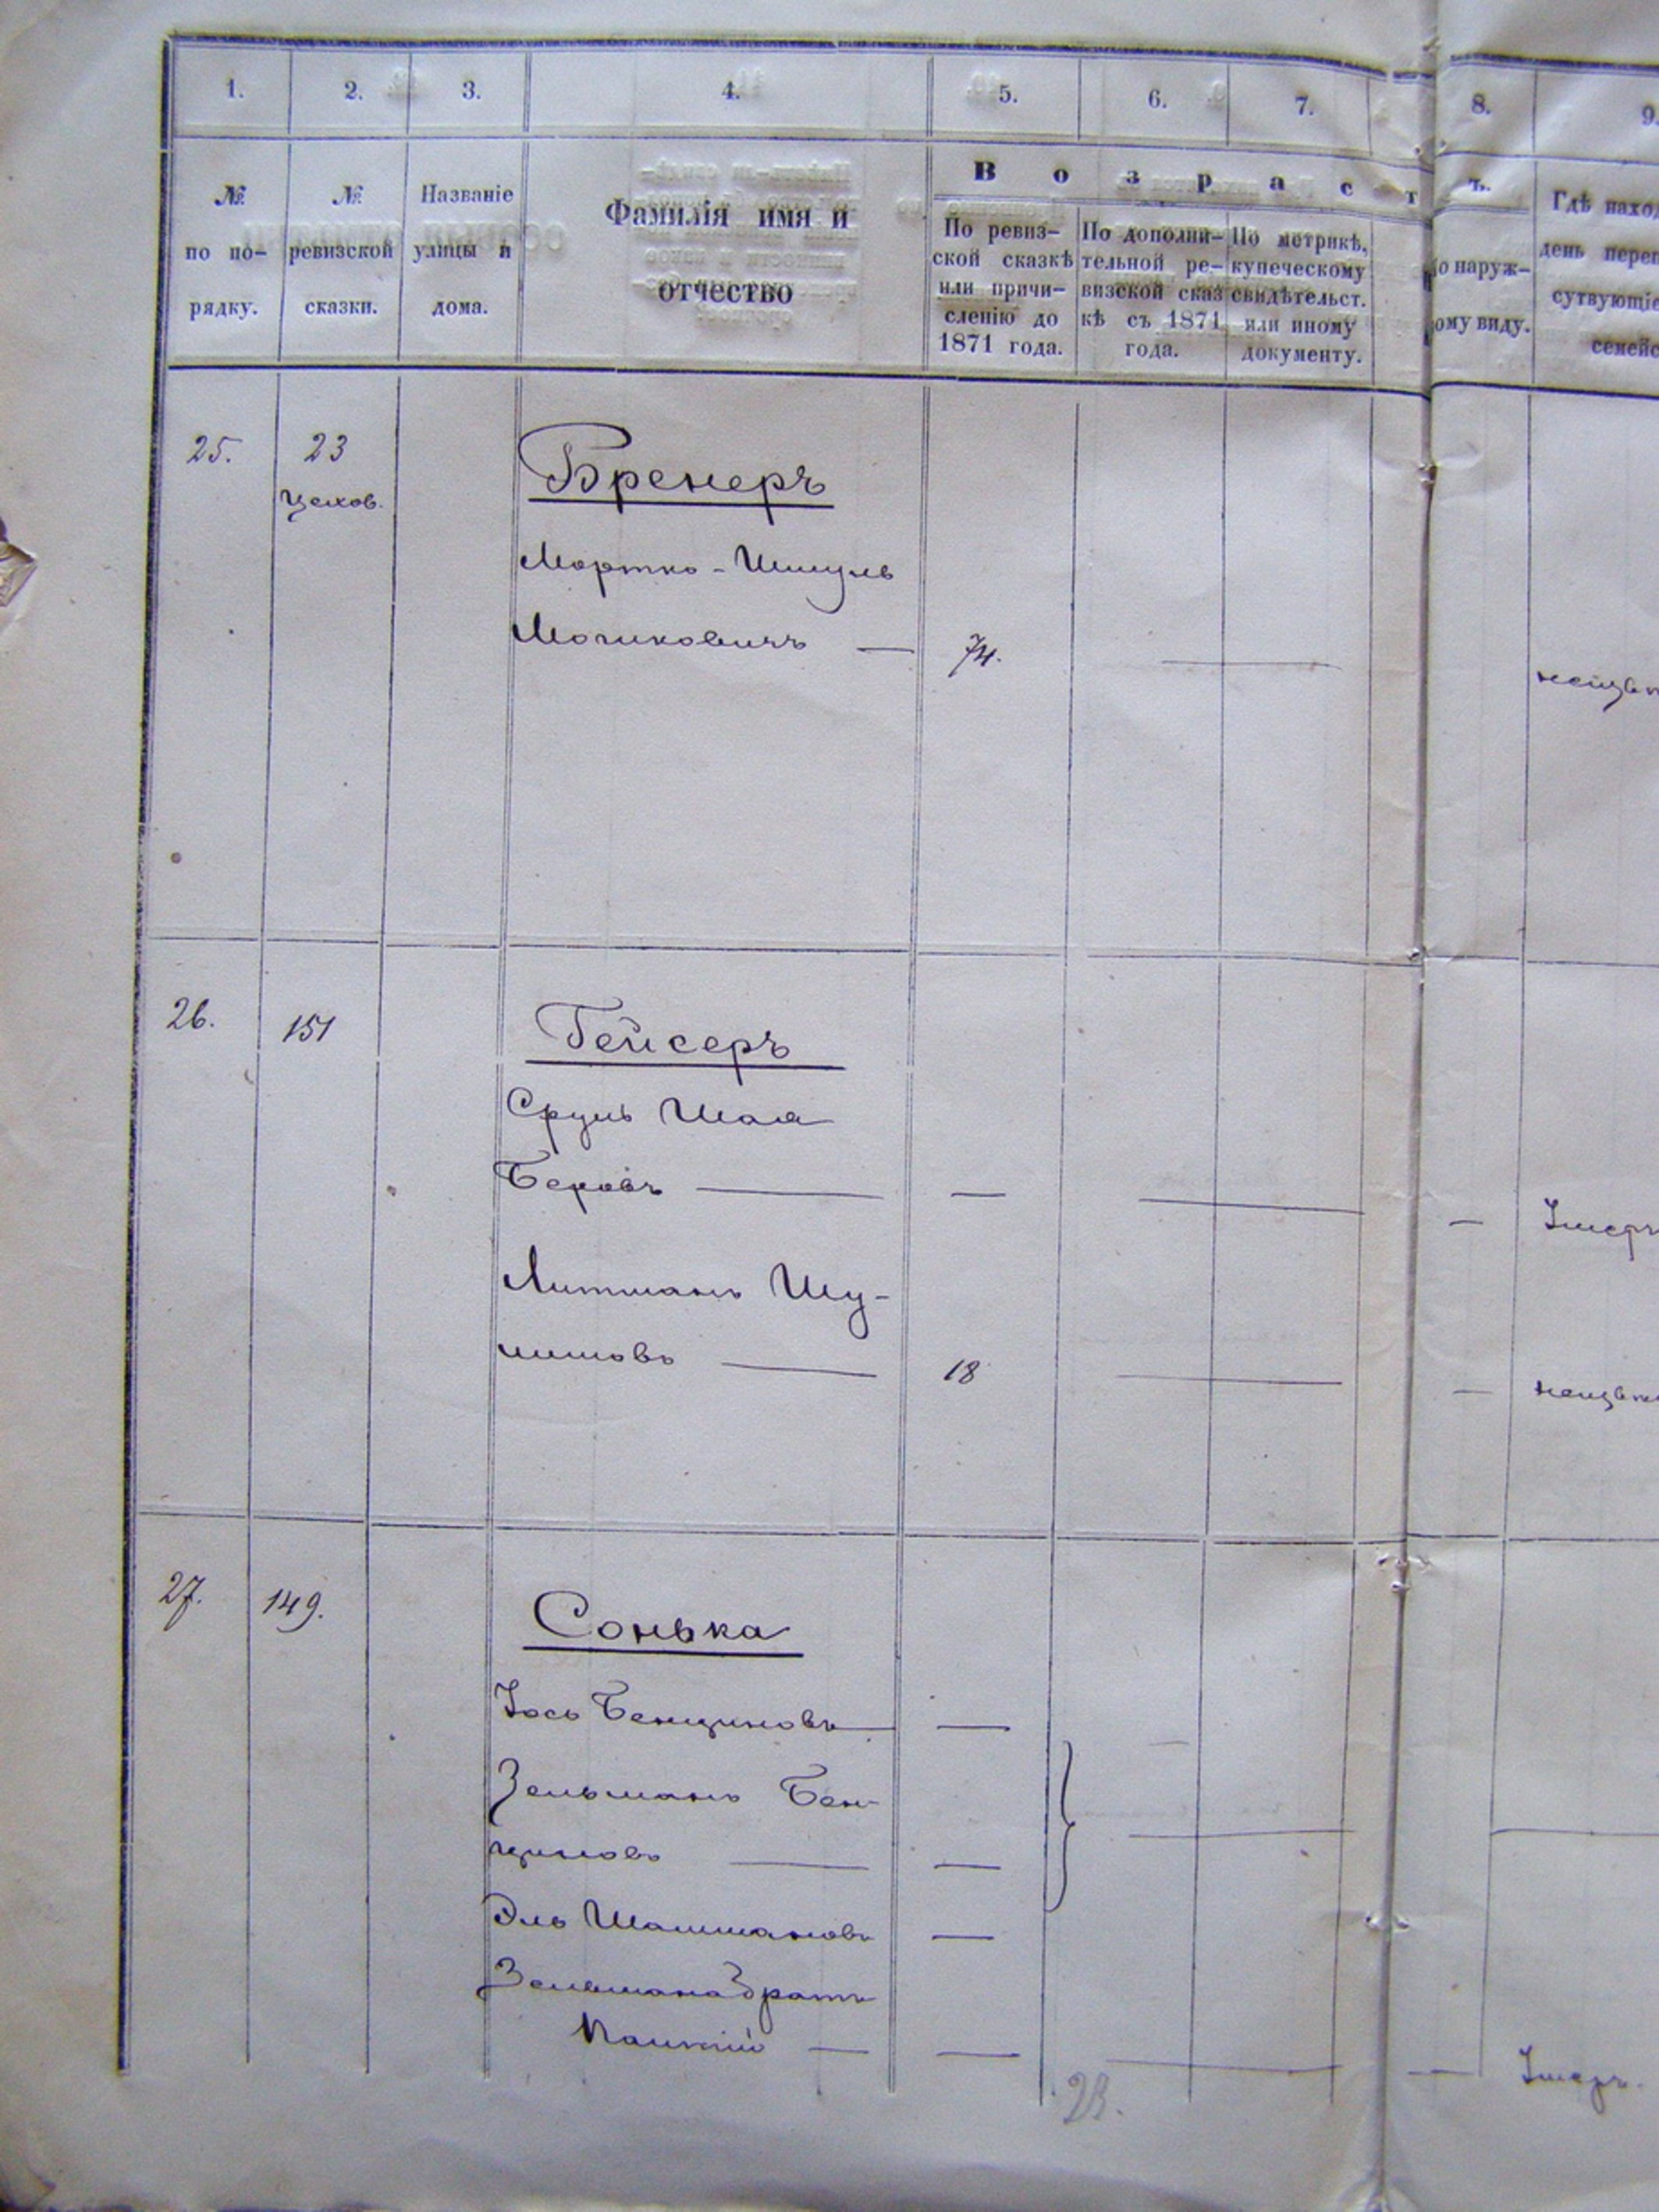 1. 2. 3. 4. 5. 6. 7. 8. 9.
№ по по-рядку.
№ ревизской сказки.
Названіе улицы и дома.
Фамилія имя и отчество
Возрастъ.
По ревиз-
ской сказкѣ
или причи-
сленію до
1871 года.
По дополни-
тельной ре-
визской сказ
кѣ съ 1871
года.
По метрикѣ,
купеческому
свидѣтельст.
или иному
документу.
о наруж-
ому виду.
Гдѣ наход
день переп
сутвующіе
семейс
25. 23 Бренеръ
Цехов.
Мортко-Шмуль
Мошковичъ — 74.
26. 151 Гейсеръ
Сруль Шая
Беровъ — — — Умеръ
Литманъ Шу-
лимовъ — 18 —
27. 149. Сонька
Іось Бенціновъ —
Зельманъ Бен-
ціновъ — —
Эль Шашмановъ —
Зельмана братъ
— — — Умеръ.
23.